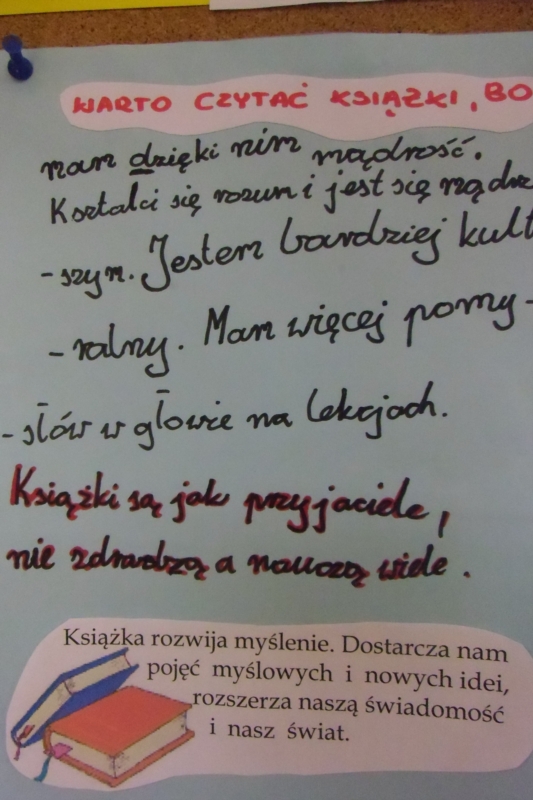 WARTO CZYTAĆ KSIĄŻKI, BO
mam dzięki nim mądrość.
Kształci się rozum i jest się mądrz
-szym. Jestem bardziej kult
-ralny. Mam więcej pomy-
-słów w głowie na lekcjach.
Książki są jak przyjaciele,
nie zdradzą a nauczą wiele.
Książka rozwija myślenie. Dostarcza nam
pojęć myślowych i nowych idei,
rozszerza naszą świadomość
i nasz świat.